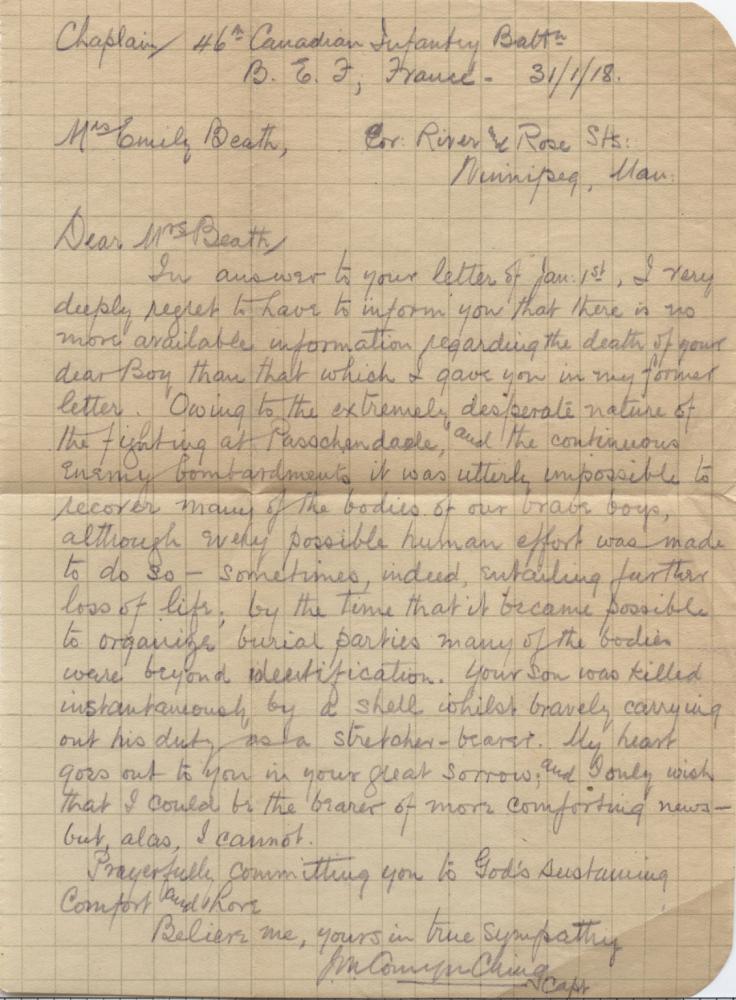 Chaplain, 46th Canadian Infantry Baltn
B. E. F, France - 31/1/18.
Mrs Emily Beath, Cor: River & Rose Sts:
Winnipeg, Man:
Dear Mrs Beath,
In answer to your letter of Jan: 1st, I very
deeply regret to have to inform you that there is no
more available information regarding the death of your
dear Boy than that which I gave you in my former
letter. Owing to the extremely desperate nature of
the fighting at Passchendaele, and the continuous
enemy bombardments it was utterly impossible to
recover many of the bodies of our brave boys,
although every possible human effort was made
to do so - sometimes, indeed, entailing further
loss of life; by the time that it became possible
to organize burial parties many of the bodies
were beyond identification. Your Son was killed
instantaneously by a shell whilst bravely carrying
out his duty as a stretcher-bearer. My heart
goes out to you in your great sorrow; and I only wish
that I could be the bearer of more comforting news -
but, alas, I cannot.
Prayerfully committing you to God's sustaining
Comfort and
Believe me, yours in true sympathy
Ching
Capt